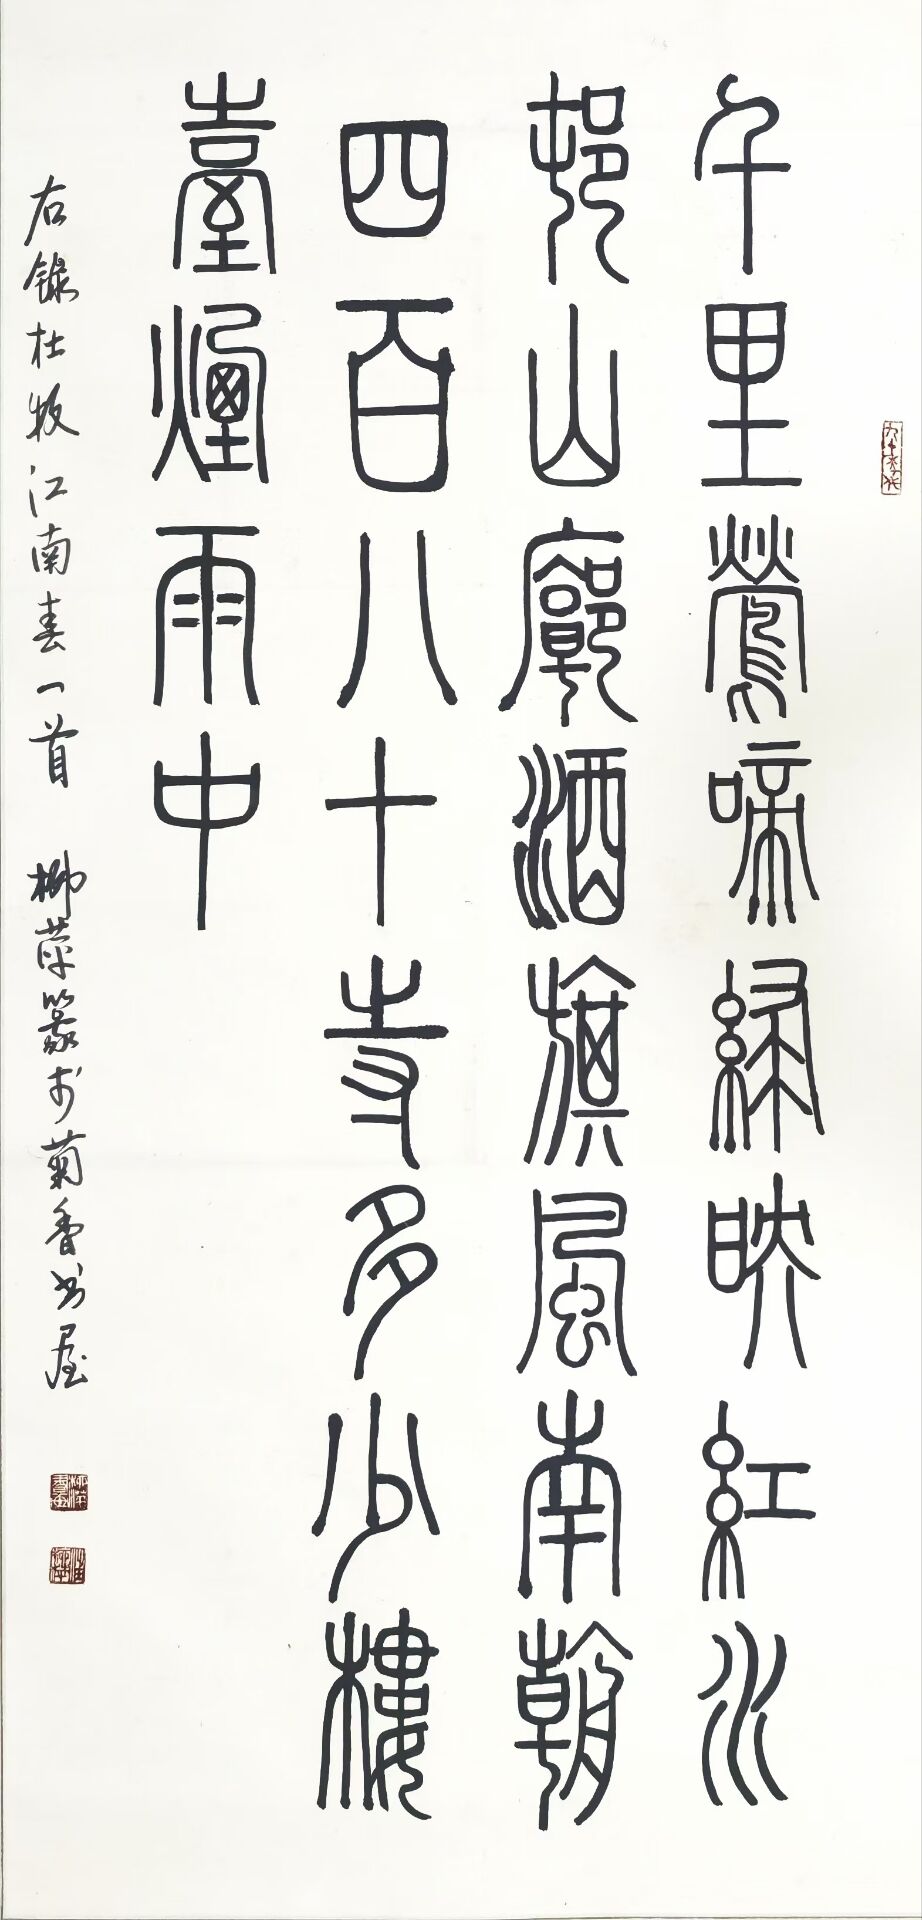 千里鶯啼綠映紅水
邨山廓酒旗風南朝
四百八十寺多少樓
臺煙雨中
右録杜牧江南春一首 柳萍篆于菊香书屋